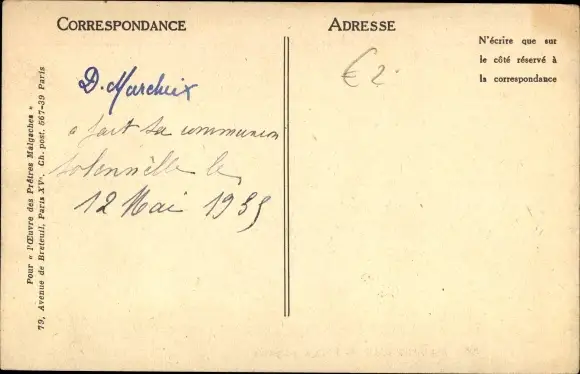 CORRESPONDANCE
ADRESSE
N'écrire que sur
le côté réservé à
la correspondance
€ 2.
D. Marcheix
a fait sa communion
solennelle le
12 Mai 1955
Pour « l'Œuvre des Prêtres Malgaches »
79, Avenue de Breteuil, Paris XVe. Ch. post. 567-39 Paris